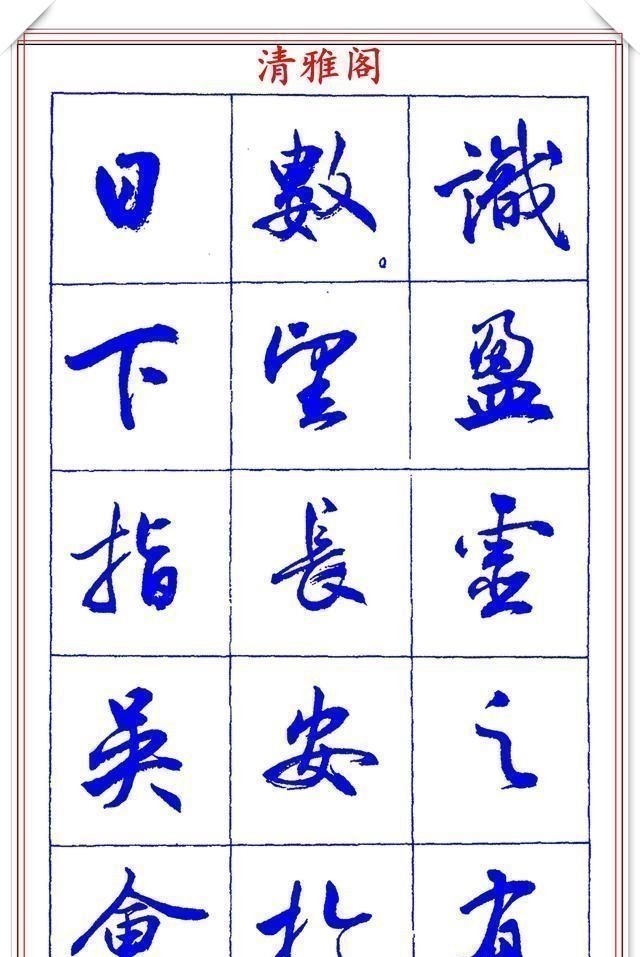 清雅阁
識盈虛之有
數。望長安於
日下指吳會